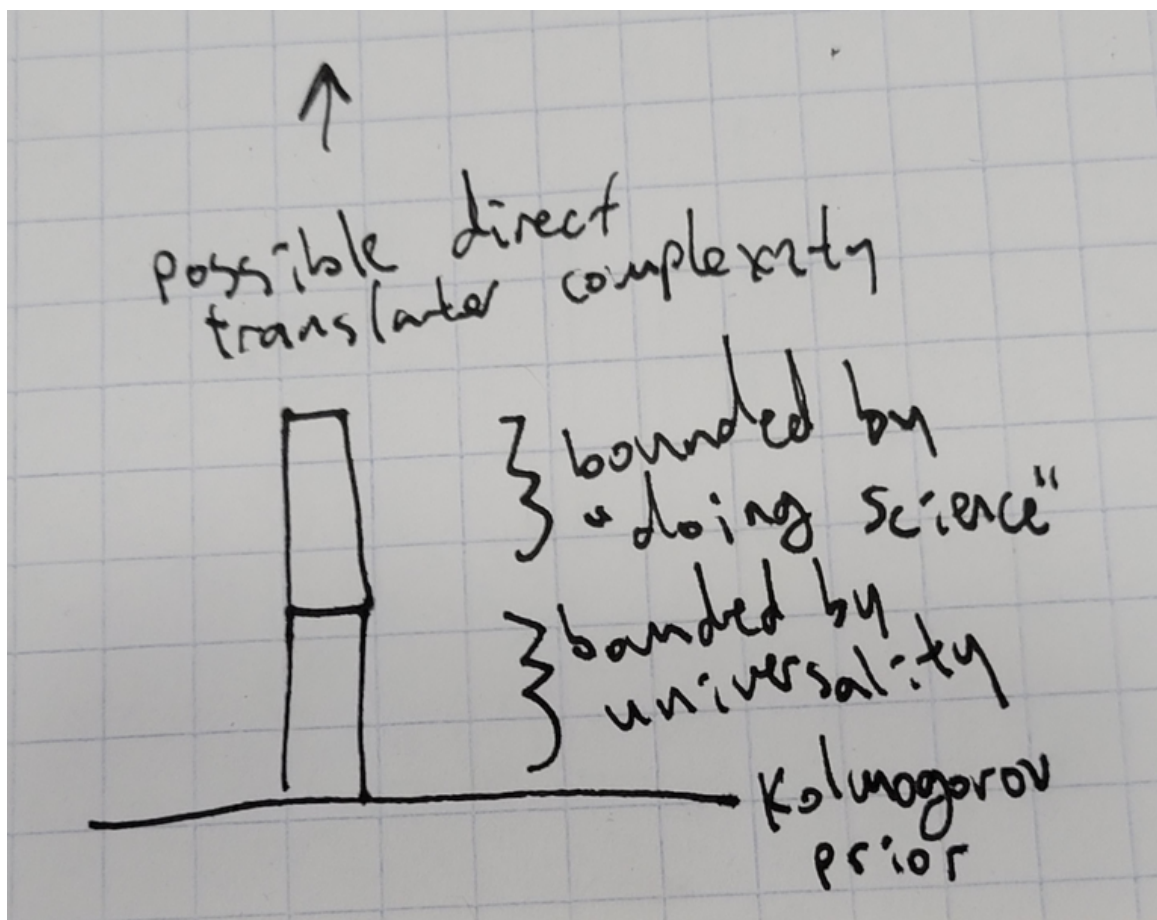 possible direct
translator complexity
bounded by
"doing science"
bounded by
universality
Kolmogorov
prior